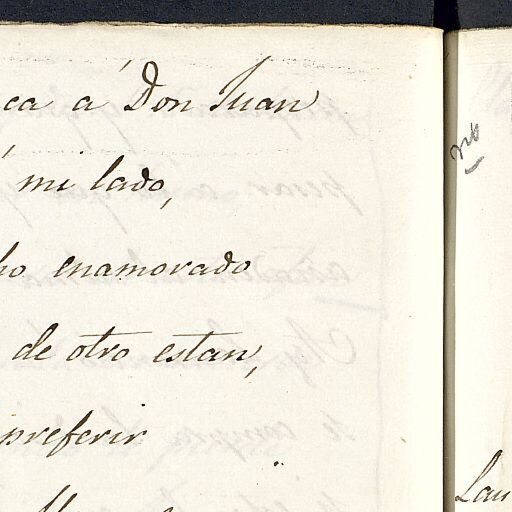 ca á Don Juan
mi lado,
ho enamorado
de otro estan,
preferir
Lau